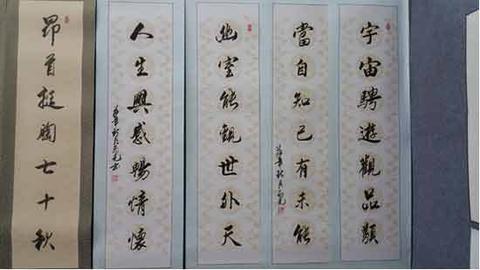 宇宙騁遊觀品類
當自知己有未能
幽室能觀世外天
人生興感暢情懷
昂首挺胸七十秋